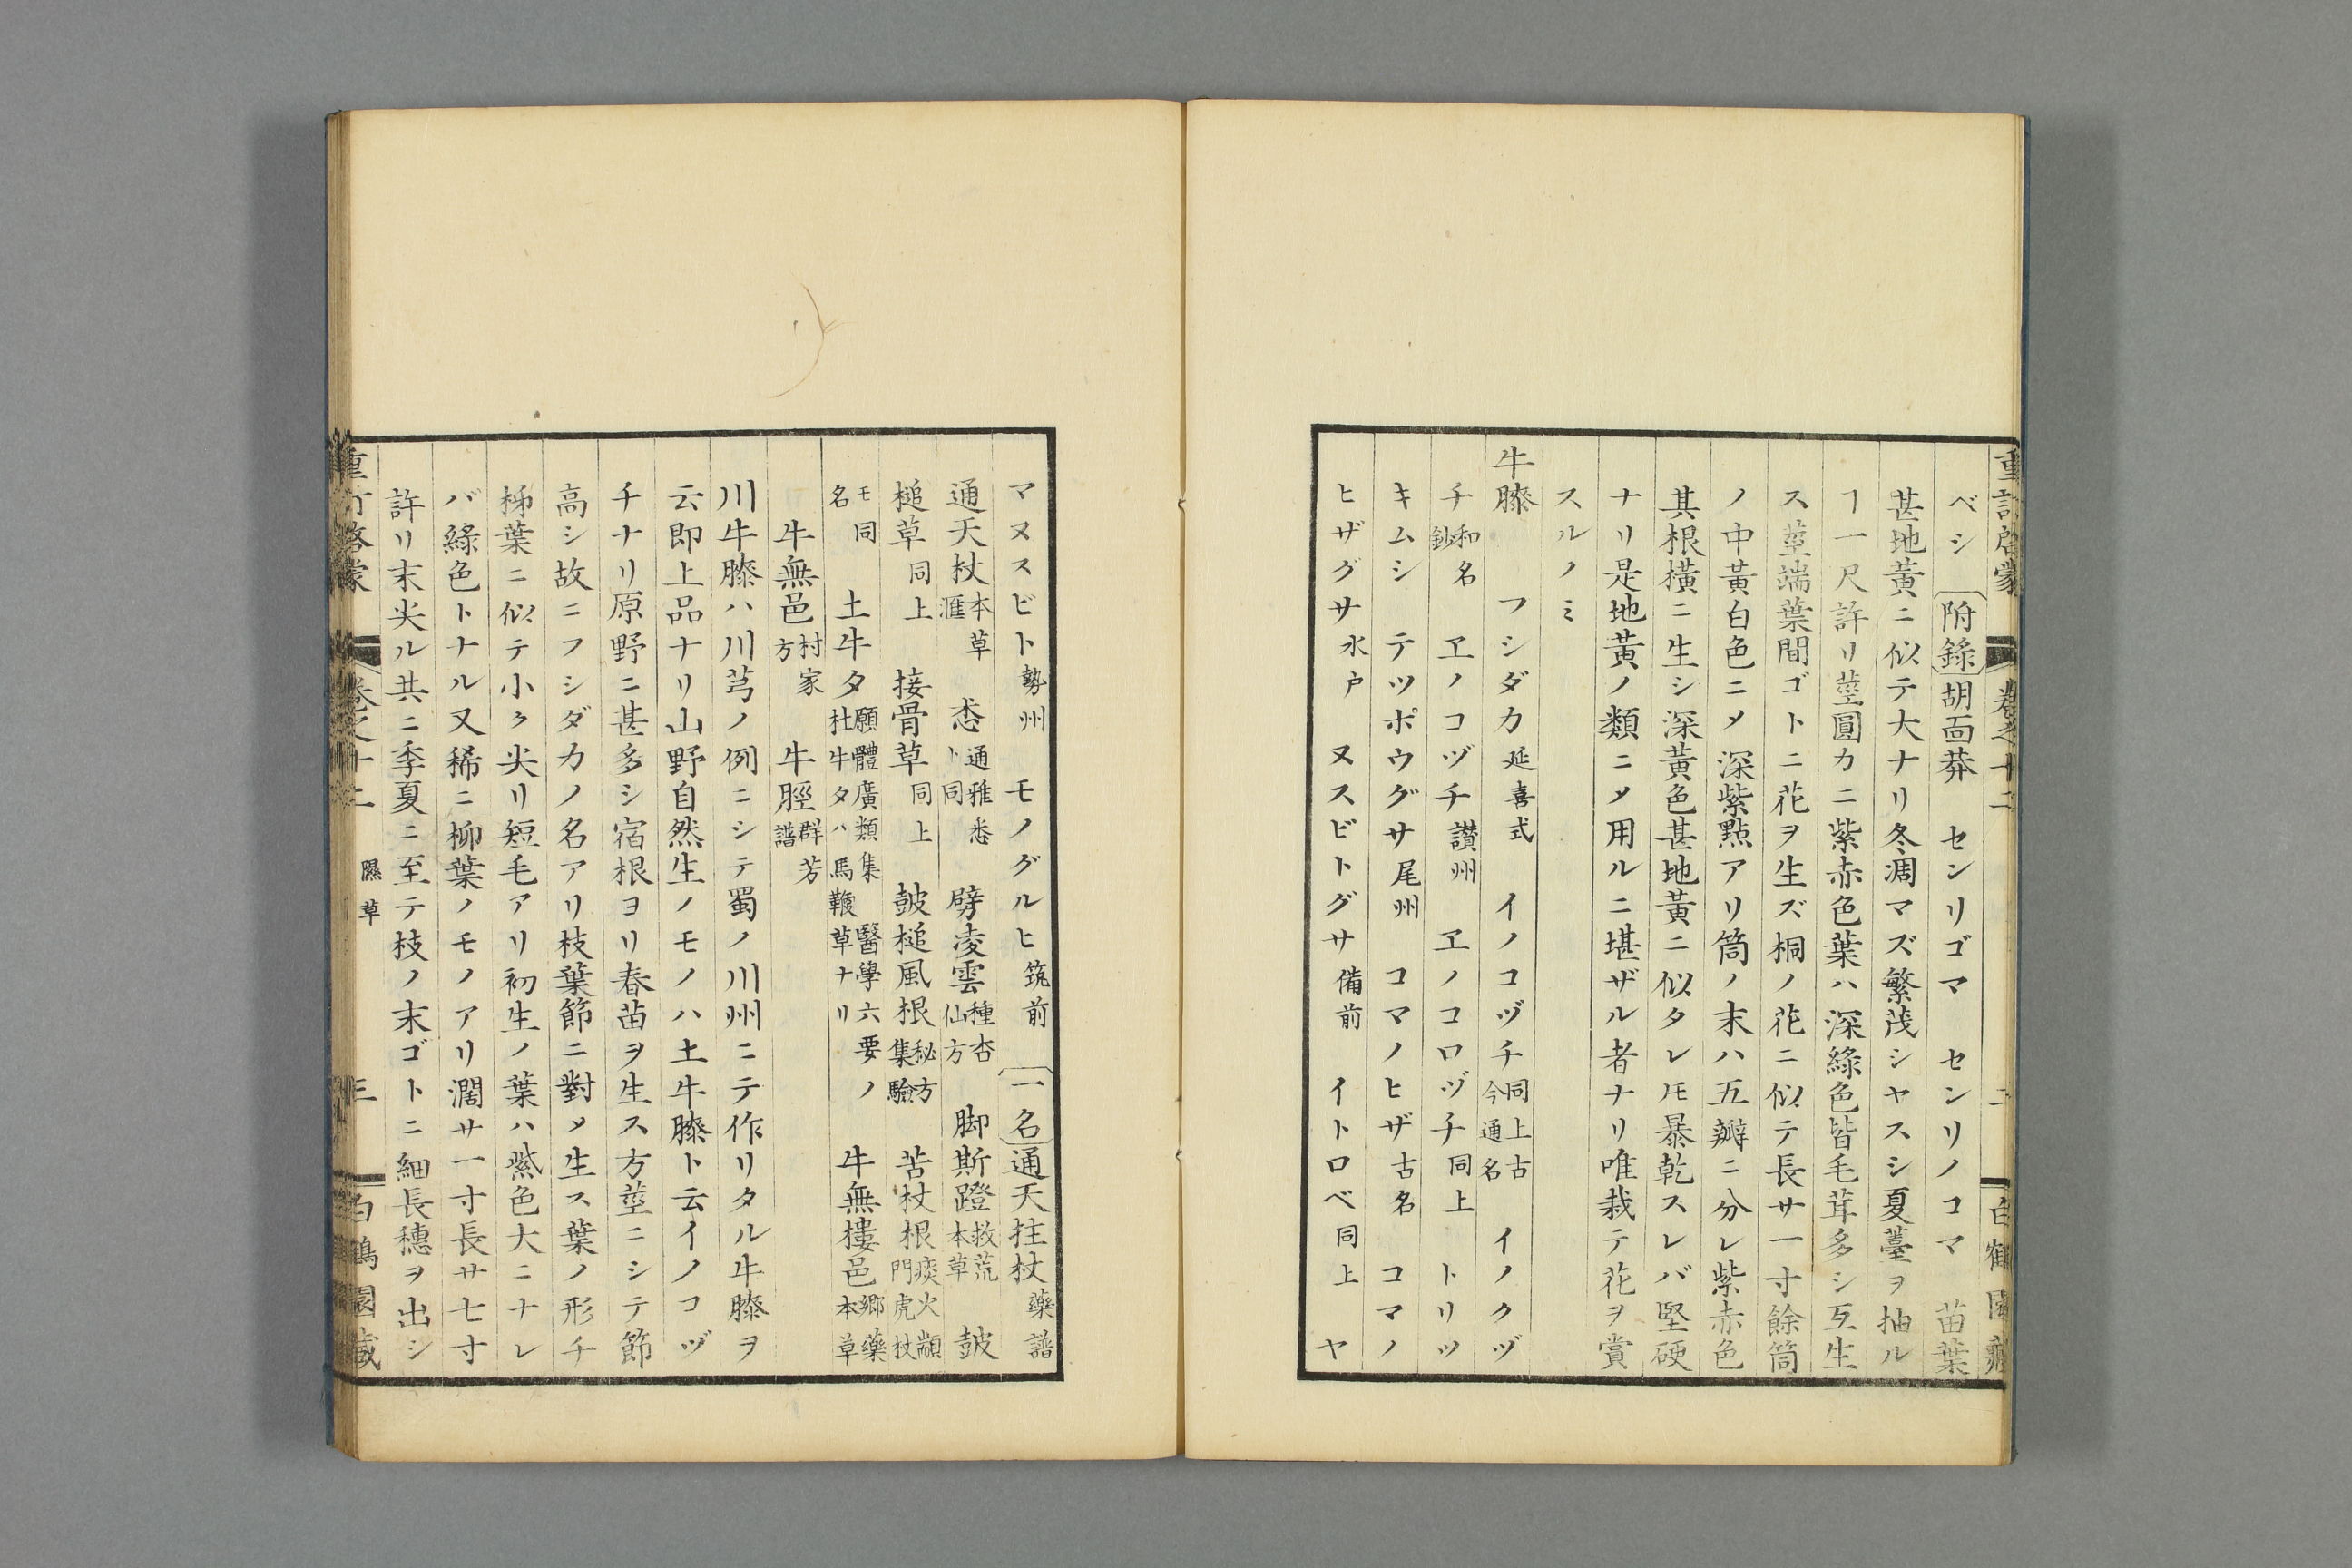 重訂啓蒙 卷之十二 二 白鶴園藏
ベシ 附錄 胡面莽 センリゴマ センリノコマ 苗葉
甚地黃ニ似テ大ナリ冬凋マズ繁茂シヤスシ夏薹ヲ抽ル
ヿ一尺許リ莖圓カニ紫赤色葉ハ深綠色皆毛茸多シ互生
ス莖端葉間ゴトニ花ヲ生ズ桐ノ花ニ似テ長サ一寸餘筒
ノ中黃白色ニメ深紫點アリ筒ノ末ハ五瓣ニ分レ紫赤色
其根橫ニ生シ深黃色甚地黃ニ似タレ𪜈暴乾スレバ堅硬
ナリ是地黃ノ類ニメ用ルニ堪ザル者ナリ唯栽テ花ヲ賞
スルノミ
牛膝 フシダカ延喜式 イノコヅチ同上古今通名 イノクヅ
チ和名鈔 ヱノコヅチ讃州 ヱノコロヅチ同上 トリツ
キムシ テツポウグサ尾州 コマノヒザ古名 コマノ
ヒザグサ水戶 ヌスビトグサ備前 イトロベ同上 ヤ
マヌスビト勢州 モノグルヒ筑前 一名 通天拄杖藥譜
通天杖本草滙 𢘅通雅悉ト同 劈凌雲種杏仙方 脚斯蹬救荒本草 鼓
槌草同上 接骨草同上 鼓槌風根秘方集驗 苦杖根痰火顓門虎杖
モ同名 土牛夕願體廣類集杜牛夕ハ馬鞭草ナリ醫學六要ノ 牛無樓邑鄉藥本草
牛無邑村家方 牛脛群芳譜
川牛膝ハ川芎ノ例ニシテ蜀ノ川州ニテ作リタル牛膝ヲ
云即上品ナリ山野自然生ノモノハ土牛膝ト云イノコヅ
チナリ原野ニ甚多シ宿根ヨリ春苗ヲ生ス方莖ニシテ節
高シ故ニフシダカノ名アリ枝葉節ニ對メ生ス葉ノ形チ
柹葉ニ似テ小ク尖リ短毛アリ初生ノ葉ハ紫色大ニナレ
バ綠色トナル又稀ニ柳葉ノモノアリ濶サ一寸長サ七寸
許リ末尖ル共ニ季夏ニ至テ枝ノ末ゴトニ細長穗ヲ出シ
重訂啓蒙 卷之十二 隰草 三 白鶴園藏